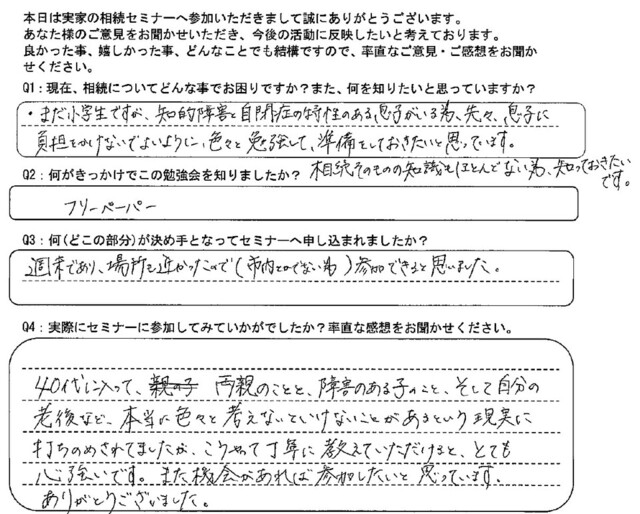 本日は実家の相続セミナーへ参加いただきまして誠にありがとうございます。
あなた様のご意見をお聞かせいただき、今後の活動に反映したいと考えております。
良かった事、嬉しかった事、どんなことでも結構ですので、率直なご意見・ご感想をお聞か
せください。
Q1：現在、相続についてどんな事でお困りですか？また、何を知りたいと思っていますか？
・まだ小学生ですが、知的障害と自閉症の特性のある息子がいる為、先々、息子に
負担をかけないでよいように、色々と勉強して、準備をしておきたいと思っています。
相続そのものの知識もほとんどない為、知っておきたい
です。
Q2：何がきっかけでこの勉強会を知りましたか？
フリーペーパー
Q3：何（どこの部分）が決め手となってセミナーへ申し込まれましたか？
週末であり、場所も近かったので（市内とかでない為）参加できると思いました。
Q4：実際にセミナーに参加してみていかがでしたか？率直な感想をお聞かせください。
40代に入って、親の子 両親のことと、障害のある子のこと、そして自分の
老後など、本当に色々と考えないといけないことがあるという現実に
打ちのめされてましたが、こうやって丁寧に教えていただけると、とても
心強いです。また機会があれば参加したいと思っています。
ありがとうございました。